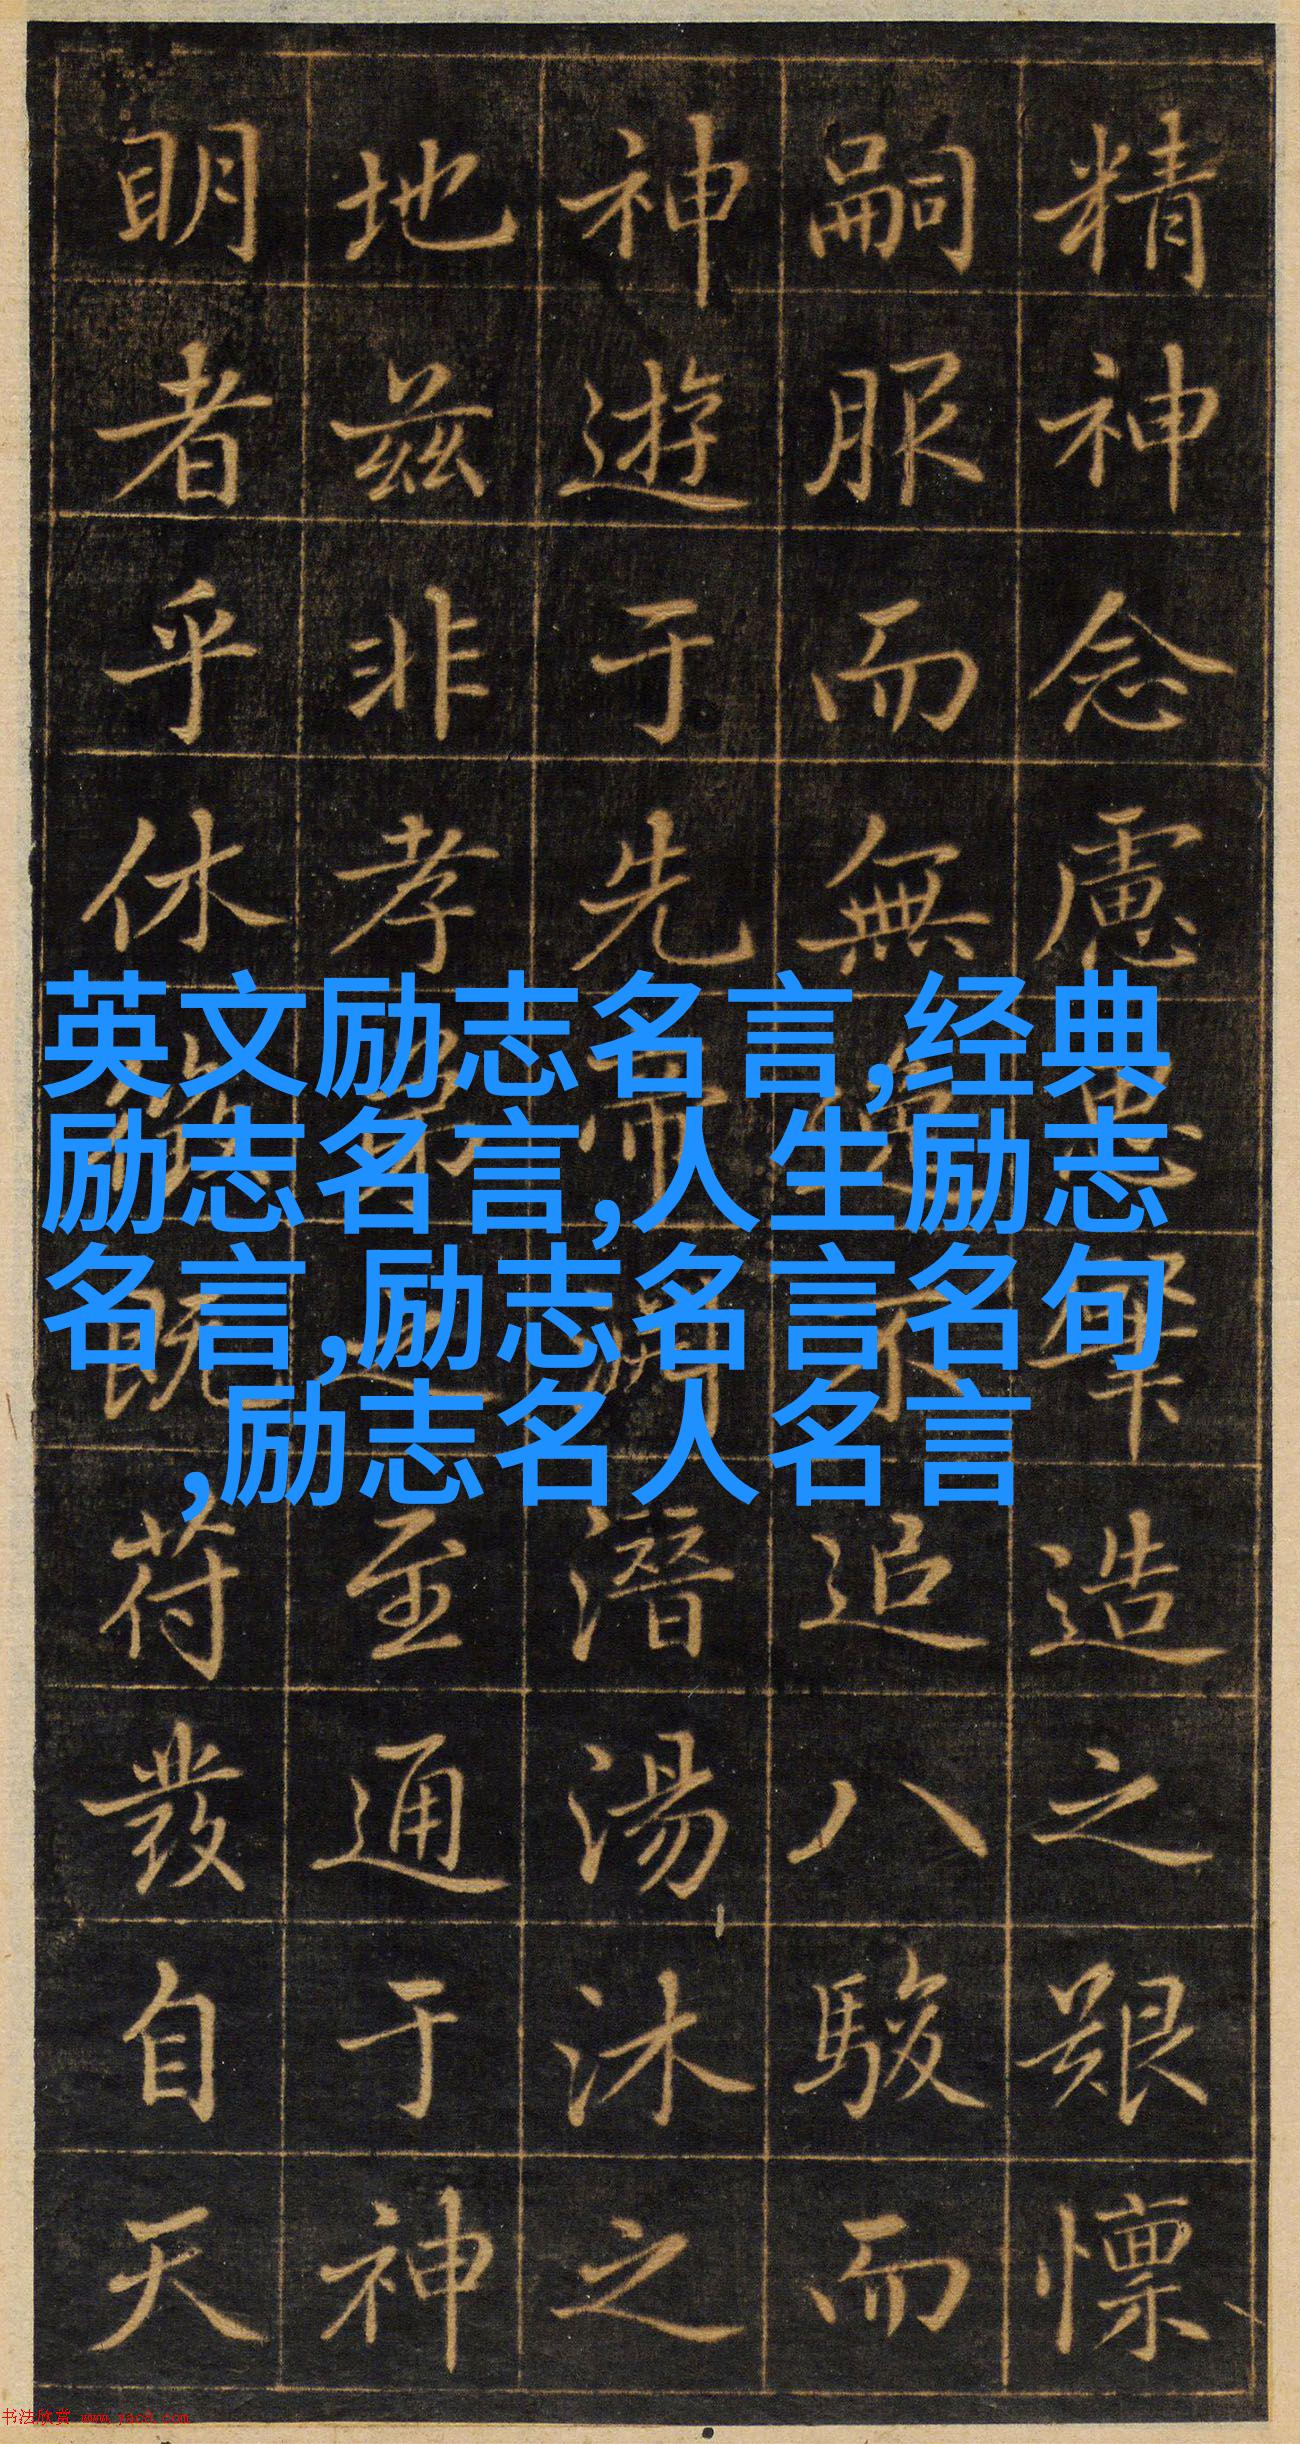 精神念慮造之艱懍
嗣服而無追八駿而
神遊于先帝潛湯沐之
地茲非孝弟之至通于神
明者乎休徵既符發自天
英文励志名言,经典
励志名言,人生励志
名言,励志名言名句
,励志名人名言
书法欣赏 www.yac8.com